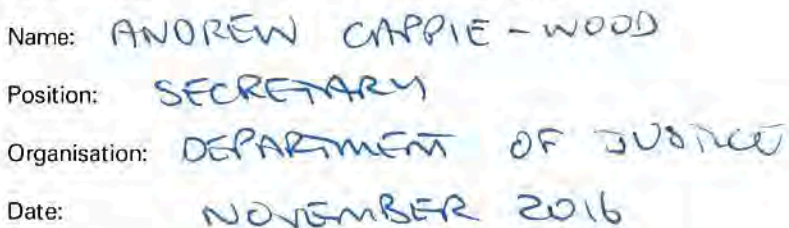 Name: ANDREW CAPPIE-WOOD
Position: SECRETARY
Organisation: DEPARTMENT OF JUSTICE
Date: NOVEMBER 2016